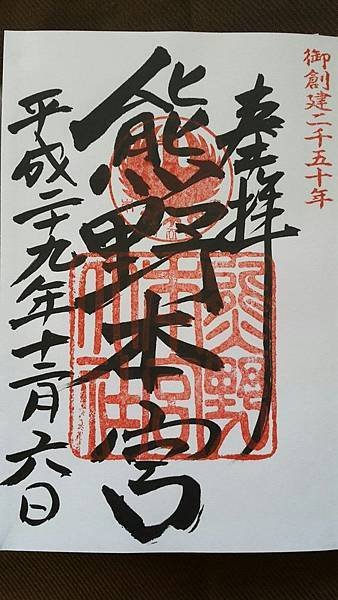 御創建二千五十年
奉拝
熊野本宮
熊野本宮大社
平成二十九年十二月六日